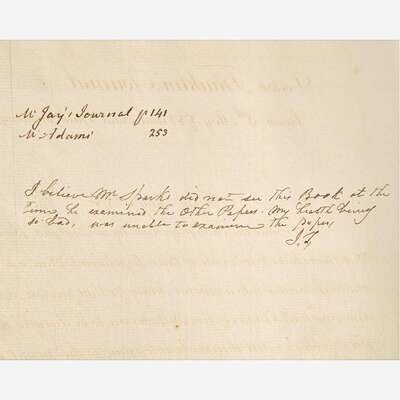 Mr Jay's Journal p 141
Mr Adams' 253
I believe Mr Sparks did not see this Book at the
time he examined the Other Papers. My health being
so bad, was unable to examine the papers